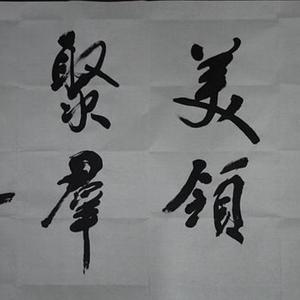 美領
聚羣